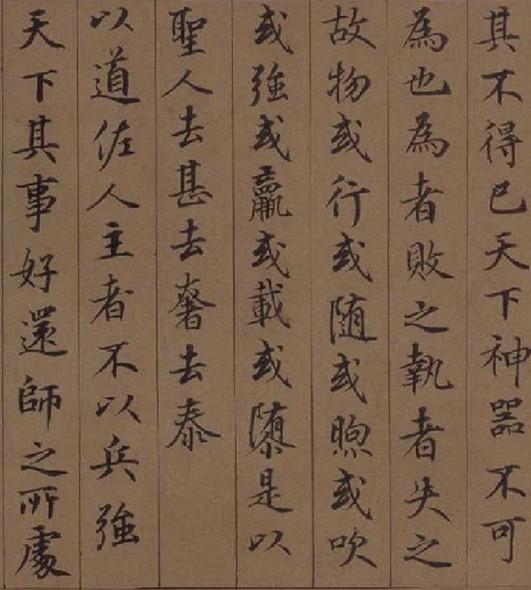 其不得已天下神器不可
為也為者敗之執者失之
故物或行或随或喣或吹
或強或羸或載或隳是以
聖人去甚去奢去泰
以道佐人主者不以兵強
天下其事好還師之所處